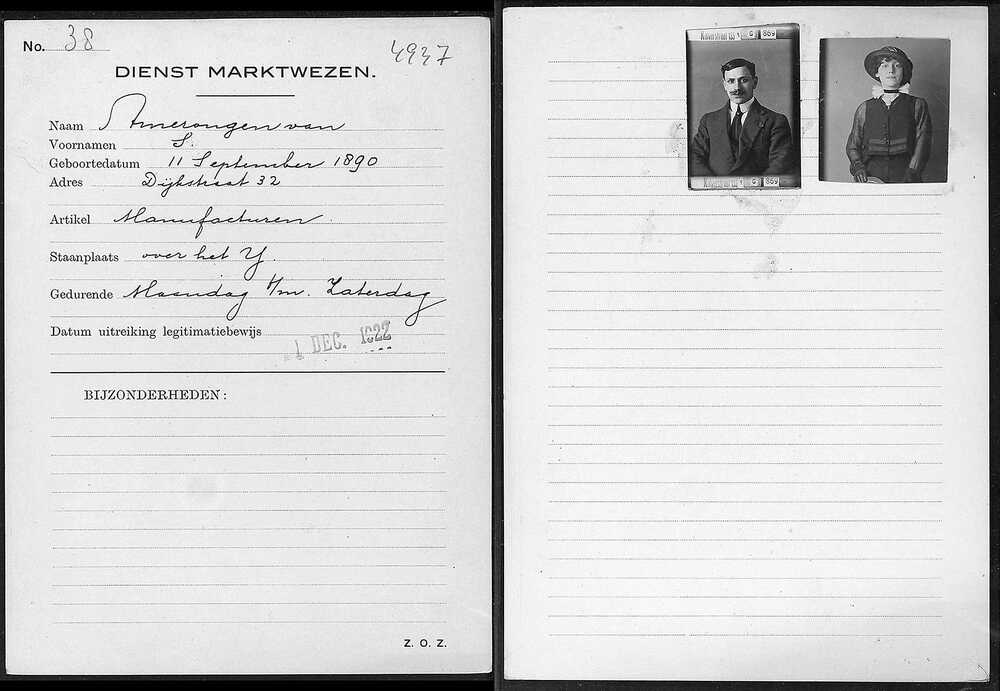 No. 38
4947
DIENST MARKTWEZEN.
Naam Amerongen van
Voornamen S.
Geboortedatum 11 September 1890
Adres Dijkstraat 32
Artikel Manufacturen.
Staanplaats over het Y.
Gedurende Maandag t/m. Zaterdag
Datum uitreiking legitimatiebewijs
1 DEC. 1922
BIJZONDERHEDEN:
Z. O. Z.
G 869
G 869